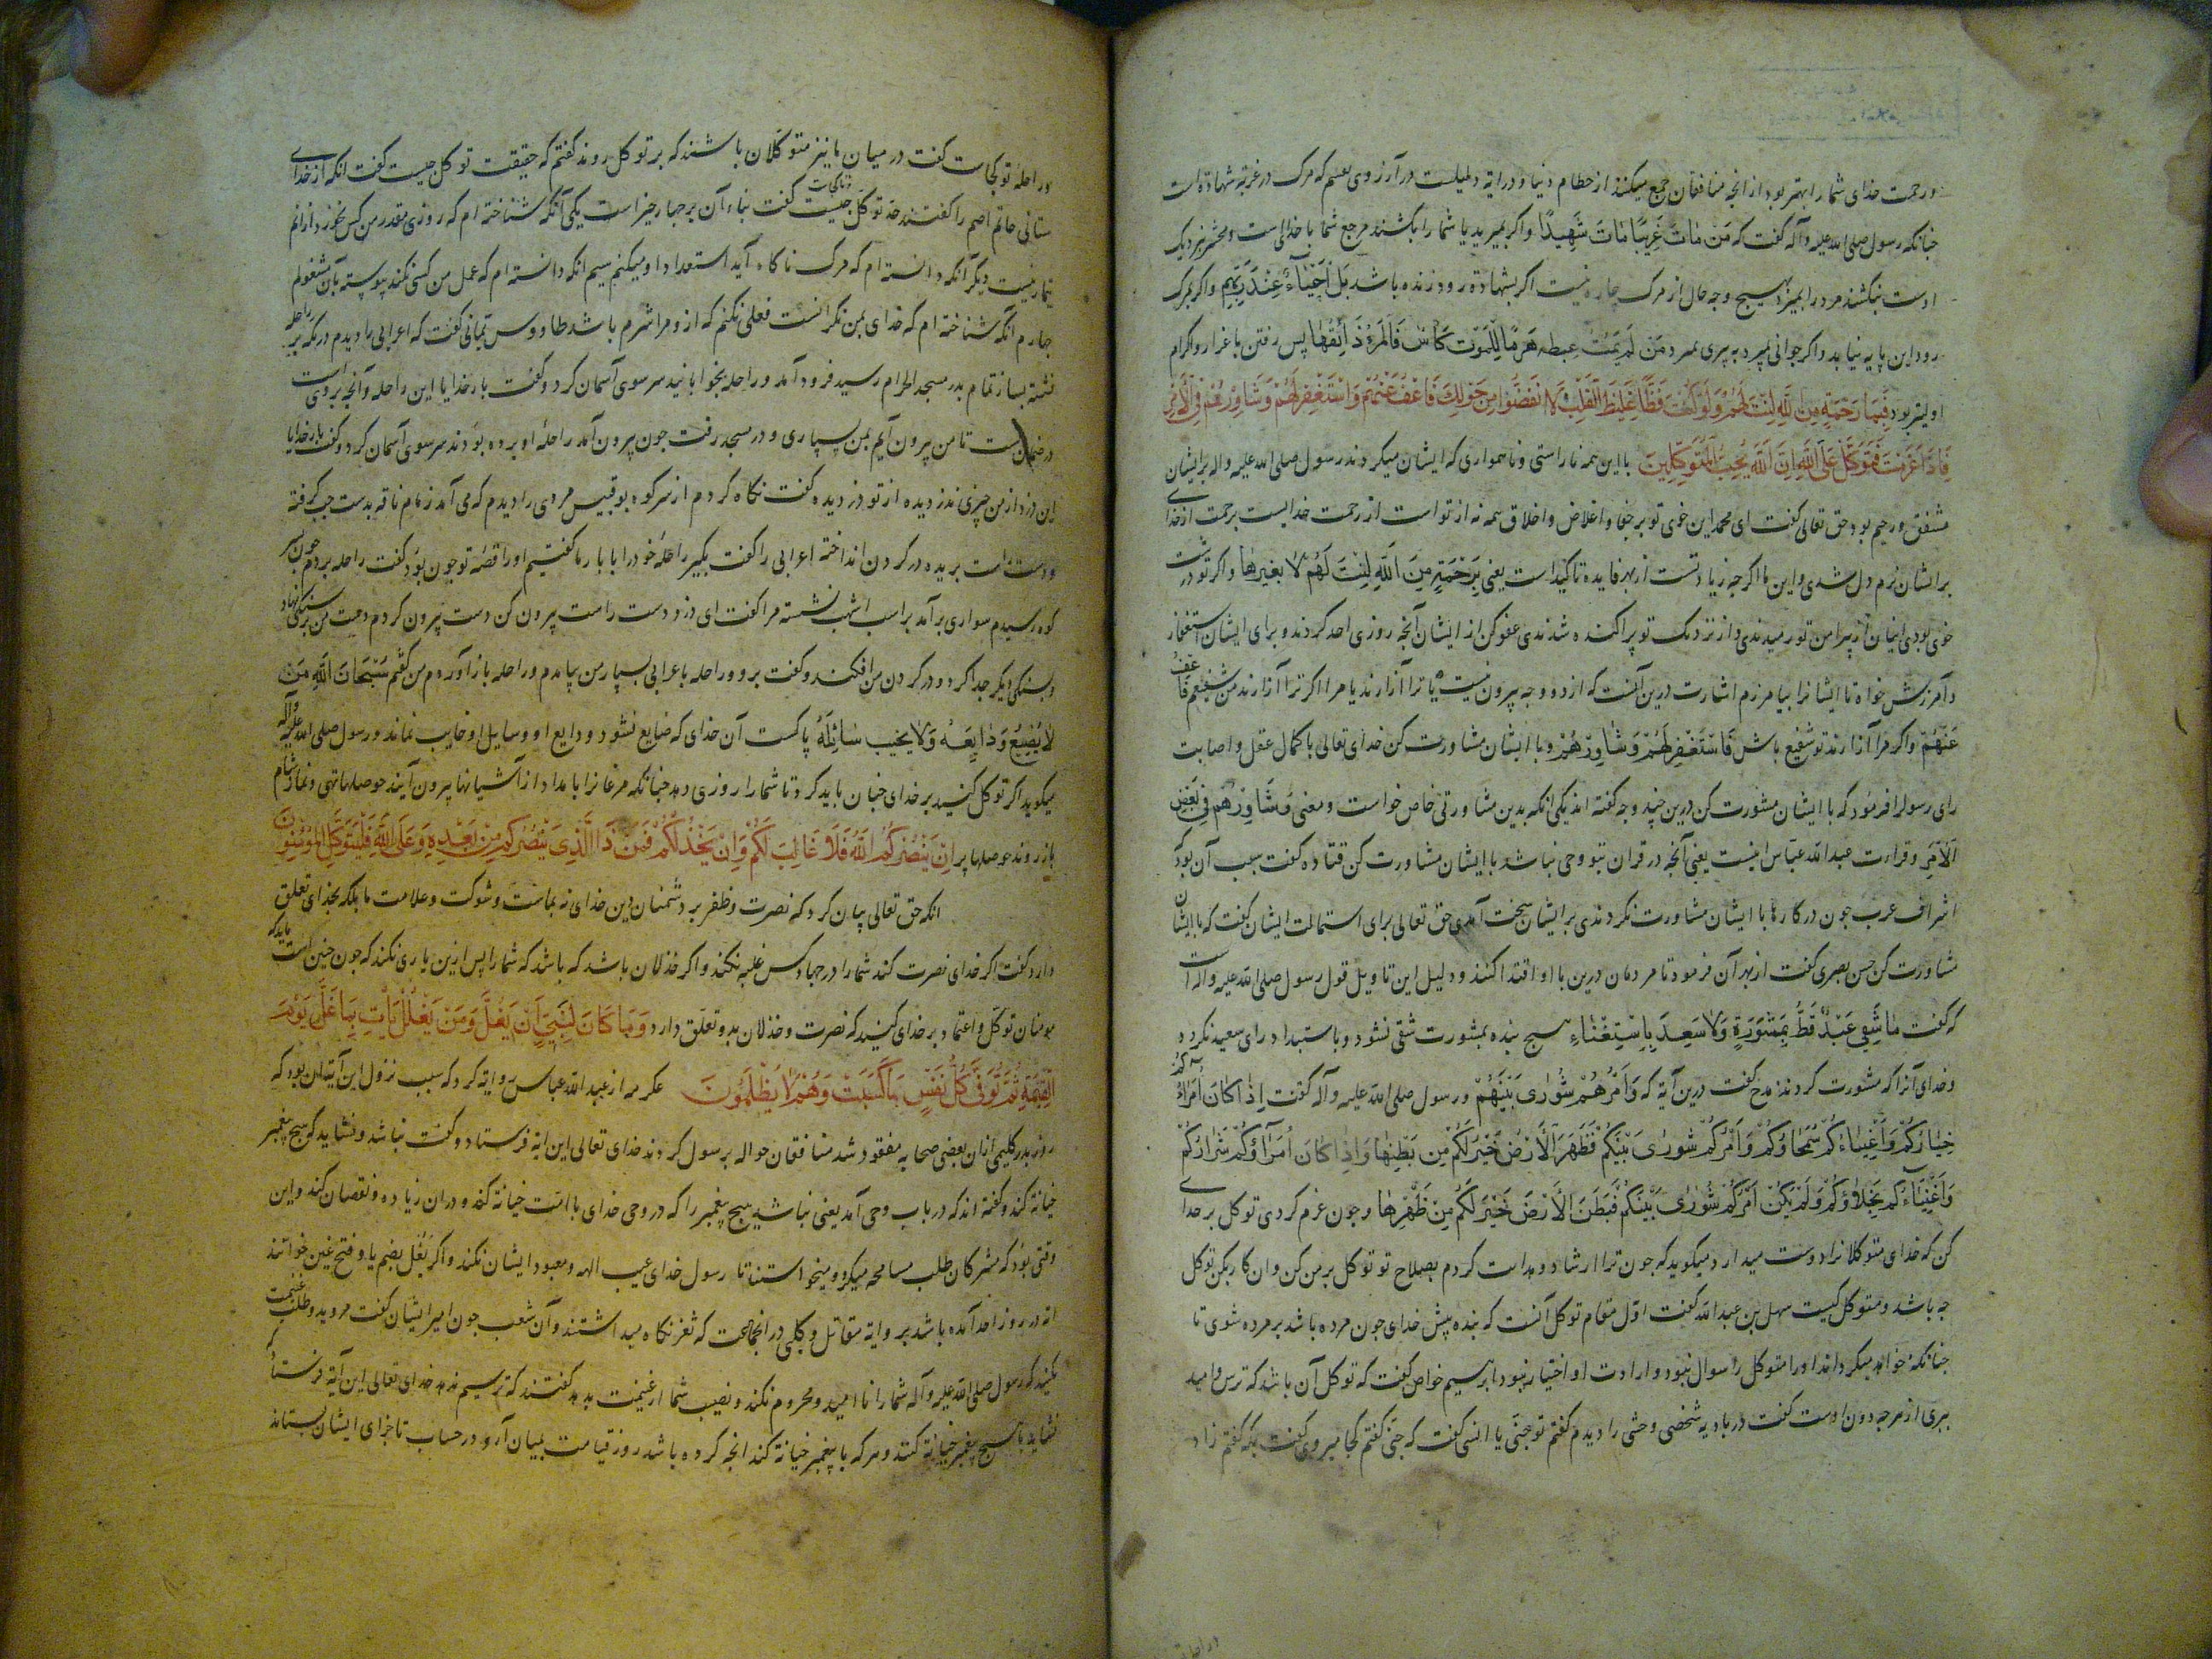 ورحمت خدای شما را بهتر بود از انجه منافقان جمع میکنند از حطام دنیا و در ایة دلیلست در آرزوی که مرک در غربة شهادة است
جنانکه رسول صلی الله علیه وآله کفت که مَن مٰاتَ غَرِیبًا مٰاتَ شَهِیدًا واکر بمیرید یا شما را بکشند مرجع شما با خدایست ومحشر نزدیک
اوست بکشند مرد را بمیرد هیج وجه حال از مرک جاره نیست اکر بشهادة رود زنده باشد بَل اَحْیٰاءٌ عِندَ رَبِّهِم واکر بمرک
رود این پایه نیابد واکر جوانی نمیرد به پیری بمرد مَن لَم یَمُت عبطه هَرمًا لِلمَوتِ کَاسٌ فَالمَرءُ ذَائِقُهٰا پس رفتن باعزاز واکرام
اولیتر بود فَبِمَا رَحْمَةٍ مِنَ اللَّهِ لِنْتَ لَهُمْ وَلَوْ كُنْتَ فَظًّا غَلِيظَ الْقَلْبِ لَانْفَضُّوا مِنْ حَوْلِكَ فَاعْفُ عَنْهُمْ وَاسْتَغْفِرْ لَهُمْ وَشَاوِرْهُمْ فِي الْأَمْرِ
فَإِذَا عَزَمْتَ فَتَوَكَّلْ عَلَى اللَّهِ إِنَّ اللَّهَ يُحِبُّ الْمُتَوَكِّلِينَ با این همه ناراستی وناهمواری که ایشان میکردند رسول صلی الله علیه واله بر ایشان
مشفق ورحیم بود حق تعالی کفت ای محمد این خوی تو بر جفا واغلاض واخلاق همه نه از تو است از رحمت خدایست برحمت از خدای
بر ایشان نرم دل شدی واین ما اکرجه زیادتست از بهر فایده تاکید است یعنی بِرَحْمَةٍ مِنَ اللهِ لِنْتَ لَهُم لا بغیرها واکر تو درشت
خوی بودی اینان از پیرامن تو رمیدندی واز نزدیک تو پراکنده شدندی عفو کن از ایشان آنجه روزی احد کردند وبرای ایشان استغفار
وآمرزش خواه تا ایشانرا بیامرزم اشارت درین آنست که از دو وجه بیرون نیست یا ترا آزارند یا مرا اکر ترا آزارند من شفیعم فَاعْفُ
عَنْهُمْ واکر مرا آزارند تو شفیع باش فَاسْتَغْفِر لَهُمْ وَشٰاوِرْهُمْ وبا ایشان مشاورت کن خدای تعالی با کمال عقل واصابت
رای رسول را فرمود که با ایشان مشورت کن درین جند وجه کفته اند یکی انکه بدین مشاورتی خاص خواست ومعنی وَشَاوِرْهُم فِی بَعْضِ
اَلْاَمْرِ وقراءت عبد الله عباس اینست یعنی آنجه در قران نبود وحی نباشد با ایشان مشاورت کن قتاده کفت سبب آن بود که
اشراف عرب جون در کارها با ایشان مشاورت نکردندی بر ایشان سخت آمدی حق تعالی برای استمالت ایشان کفت که با ایشان
مشاورت کن حسن بصری کفت از بهر آن فرمود تا مردمان درین با او اقتدا کنند ودلیل این تاویل قول رسول صلی الله علیه واله است
که کفت مٰا شَقِیَ عَبْدٌ قَطُّ بِمَشْوَرَةٍ وَلا سَعِدَ بِاِسْتِغْنٰاءِ هیج بنده بمشورت شقی نشود وباستبداد رای سعید نکردد
وخدای آنرا که مشورت کردند مدح کفت درین آیة که وَاَمْرُهُمْ شُوْرٰی بَیْنَهُمْ ورسول صلی الله علیه وآله کفت اِذٰا کٰانَ اُمَرٰاءُکُمْ
خِیٰارُکُمْ وَاَغْنِیٰاءُکُمْ سُمَحٰاؤُکُمْ وَاَمْرُکُمْ شُورٰی بَیْنَکُمْ فَظَهْرُ الْاَرْضِ خَیْرٌ لَکُمْ مِنْ بَطْنِهٰا وَاِذٰا کٰانَ اُمَرٰاؤُکُمْ شَرٰارُکُمْ
وَاَغْنِیٰاءُکُم بُخَلاؤُکُمْ وَلَمْ یَکُنْ اَمْرُکُمْ شُوْرٰی بَیْنَکُمْ فَبَطْنُ الْاَرْضِ خَیْرٌ لَکُمْ مِنْ ظَهْرِهٰا وجون عزم کردی توکل بر خدای
کن که خدای متوکلانرا دوست میدارد میکوید که جون ترا ارشاد وهدایت کردم بصلاح تو توکل بر من کن وان کار بکن توکل
جه باشد ومتوکل کیست سهل بن عبد الله کفت اوّل مقام توکل آنست که بنده پیش خدای جون مرده باشد بر مرده شوی تا
جنانکه خواهد میکرداند اورا متوکل را سوال نبود وارادت او اختیار نبود ابرهیم خواص کفت که توکل آن باشد که ترس وامید
ببری از هرجه دون اوست کفت در بادیه شخصی وحشی را دیدم کفتم تو جنّی یا انسی کفت که جنّی کفتم کجا میروی کفت بمکه کفتم زاد
وراحلهٔ تو کجاست کفت در میان ما نیز متوکلان باشند که بر توکل روند کفتم که حقیقت توکل جیست کفت انکه از خدای
ستانی حاتم اصم را کفتند حد توکل جیست کفت بناء آن بر جهار جیز است یکی آنکه شناخته ام که روزی مقدر من کس نخورد از انم
تیمار نیست دیکر آنکه دانسته ام که مرک ناکاه آید استعداد او میکنم سیم انکه دانسته ام که عمل من کسی نکند پیوسته بآن مشغولم
جهارم آنکه شناخته ام که خدای بمن نکرانست فعلی نکنم که از و مرا شرم باشد طاووس یمانی کفت که اعرابی را دیدم در مکه بر راحله
نشسته بیامد تا بدر مسجد الحرام رسید فرود آمد وراحله بخوابانید سر سوی آسمان کرد وکفت بار خدایا این راحله وآنجه بروی است
در ضمان تست تا من بیرون آیم بمن سپاری ودر مسجد رفت جون بیرون آمد راحلهٔ او برده بودند سر سوی آسمان کرد وکفت بار خدایا
این دزد از من چیزی ندزدیده از تو دزدیده کفت نکاه کردم از سر کوه بوقبیس مردی را دیدم که می آمد زمام ناقه بدست جب کرفته
ودست راست بریده در کردن انداخته اعرابی را کفت بکیر راحلهٔ خود را بابا رها کفتیم اورا قصهٔ تو جون بود کفت راحله بردم جون بسر
کوه رسیدم سواری برآمد بر اسب اشهب نشسته مرا کفت ای دزد دست راست بیرون کن دست بیرون کردم دست من بر سنکی نهاد
وبسنکی دیکر جدا کرد ودر کردن من افکند وکفت برو وراحله باعرابی بسپار من بیامدم وراحله باز آوردم من کفتم سُبْحَانَ اللهِ مَنْ
لا یُضِیْعُ وَدٰایِعَهُ وَلا یخیب سٰائِلَهُ پاکست آن خدای که ضایع نشود ودایع او وسایل او خایب نماند ورسول صلی الله علیه وآله
میکوید اکر توکل کنید بر خدای جنان باید کرد تا شما را روزی دهد جنانکه مرغانرا بامداد از آشیانها بیرون آیند حوصلها تهی ونماز شام
باز روند حوصلها پر اِنْ یَنْصُرْکُمُ اللّٰهُ فَلَا غَالِبَ لَکُمْ وَاِنْ یَخْذُلْکُمْ فَمَنْ ذَا الَّذِی یَنْصُرُکُمْ مِنْ بَعْدِهِ وَعَلَی اللّٰهِ فَلْیَتَوَکَّلِ الْمُؤْمِنُونَ
انکه حق تعالی بیان کرد که نصرت وظفر بر دشمنان دین خدای نه بماست وشوکت وعلامت ما بلکه بخدای تعلق
دارد کفت اکر خدای نصرت کند شما را در جهاد کس غلبه نکند واکر خذلان باشد که باشد که شما را پس ازین یاری کند که جون جنین است باید که
مومنان توکل واعتماد بر خدای کنند که نصرت وخذلان بدو تعلق دارد وَمَا کَانَ لِنَبِیٍّ اَنْ یَغُلَّ وَمَنْ یَغْلُلْ یَأْتِ بِمَا غَلَّ یَوْمَ
الْقِیٰمَةِ ثُمَّ تُوَفّٰی کُلُّ نَفْسٍ مَا کَسَبَتْ وَهُمْ لَا یُظْلَمُونَ عکرمه از عبد الله عباس روایة کرد که سبب نزول این آیة آن بود که
روز بدر کلیمی ازان بعضی صحابه مفقود شد منافقان حواله برسول کردند خدای تعالی این ایة فرستاد وکفت نباشد ونشاید که هیج پیغمبر
خیانة کند وکفته اند که در باب وحی آمد یعنی نباشد هیج پیغمبر را که در وحی خدای با امّت خیانة کند ودران زیاده ونقصان کند واین
وقتی بود که مشرکان طلب مسامحه میکرد ومیخواستند تا رسول خدای عیب الهه ومعبود ایشان نکند واکر یُغَلّ بضم یا وفتح غین خوانند
ایة در روز احد آمده باشد بر روایة مقاتل وکلبی در انجماعت که ثغر نکاه میداشتند وآن شعب جون امیر ایشان کفت مروید وطلب غنیمت
مکنید که رسول صلی الله علیه وآله شما را ناامید ومحروم نکند ونصیب شما از غنیمت بدهد کفتند که ترسیم ندهد خدای تعالی این آیة فرستاد که
نشاید تا هیج پیغمبر خیانة کند وهر که با پیغمبر خیانة کند انجه کرده باشد روز قیامت بمیان آرد ودر حساب تا جزای ایشان بستاند